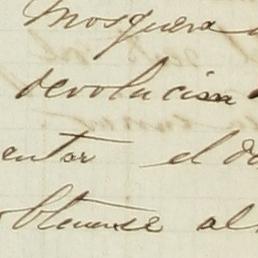 Mosquera
devolucion
entar el d
obtenerse al